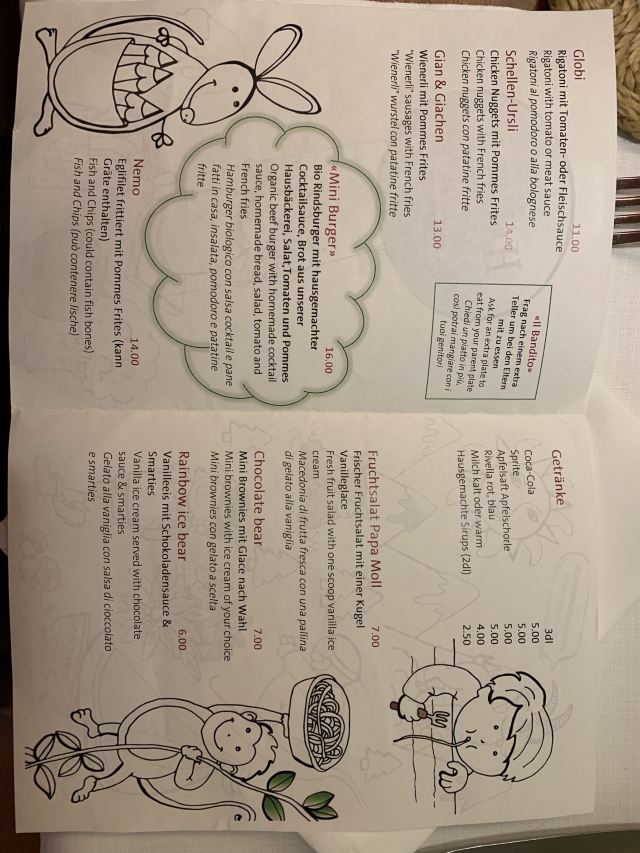 Globi 11.00
Rigatoni mit Tomaten- oder Fleischsauce
Rigatoni with tomato or meat sauce
Rigatoni al pomodoro o alla bolognese
Schellen-Ursli 14.00
Chicken Nuggets mit Pommes Frites
Chicken nuggets with French fries
Chicken nuggets con patatine fritte
Gian & Giachen 13.00
Wienerli mit Pommes Frites
"Wienerli" sausages with French fries
"Wienerli" wurstel con patatine fritte
«Il Bandito»
Frag nach einem extra
Teller um bei den Eltern
mit zu essen
Ask for an extra plate to
eat from your parent plate
Chiedi un piatto in più,
così potrai mangiare con i
tuoi genitori
«Mini Burger» 16.00
Bio Rindsburger mit hausgemachter
Cocktailsauce, Brot aus unserer
Hausbäckerei, Salat,Tomaten und Pommes
Organic beef burger with homemade cocktail
sauce, homemade bread, salad, tomato and
French fries
Hamburger biologico con salsa cocktail e pane
fatti in casa, insalata, pomodoro e patatine
fritte
Nemo 14.00
Eglifilet frittiert mit Pommes Frites (kann
Gräte enthalten)
Fish and Chips (could contain fish bones)
Fish and Chips (può contenere lische)
Getränke 3dl
Coca-Cola 5.00
Sprite 5.00
Apfelsaft Apfelschorle 5.00
Rivella rot, blau 5.00
Milch kalt oder warm 4.00
Hausgemachte Sirups (2dl) 2.50
Fruchtsalat Papa Moll 7.00
Frischer Fruchtsalat mit einer Kugel
Vanilleglace
Fresh fruit salad with one scoop vanilla ice
cream
Macedonia di frutta fresca con una pallina
di gelato alla vaniglia
Chocolate bear 7.00
Mini Brownies mit Glace nach Wahl
Mini brownies with ice cream of your choice
Mini brownies con gelato a scelta
Rainbow ice bear 6.00
Vanilleeis mit Schokoladensauce &
Smarties
Vanilla ice cream served with chocolate
sauce & smarties
Gelato alla vaniglia con salsa di cioccolato
e smarties